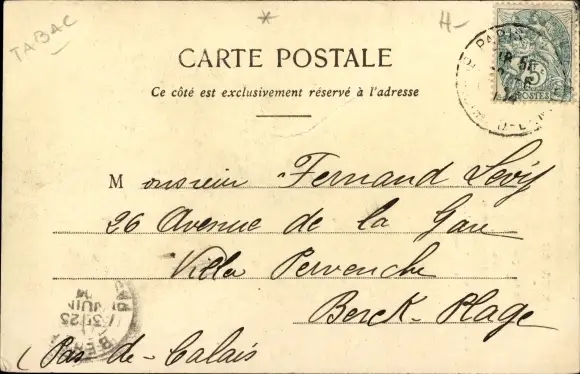 TABAC
H-
CARTE POSTALE
Ce côté est exclusivement réservé à l'adresse
PARIS
5c
POSTES
Monsieur Fernand Lévy
26 Avenue de la Gare
Villa Pervenche
Berck-Plage
(Pas-de-Calais
23
JUIN
BERCK